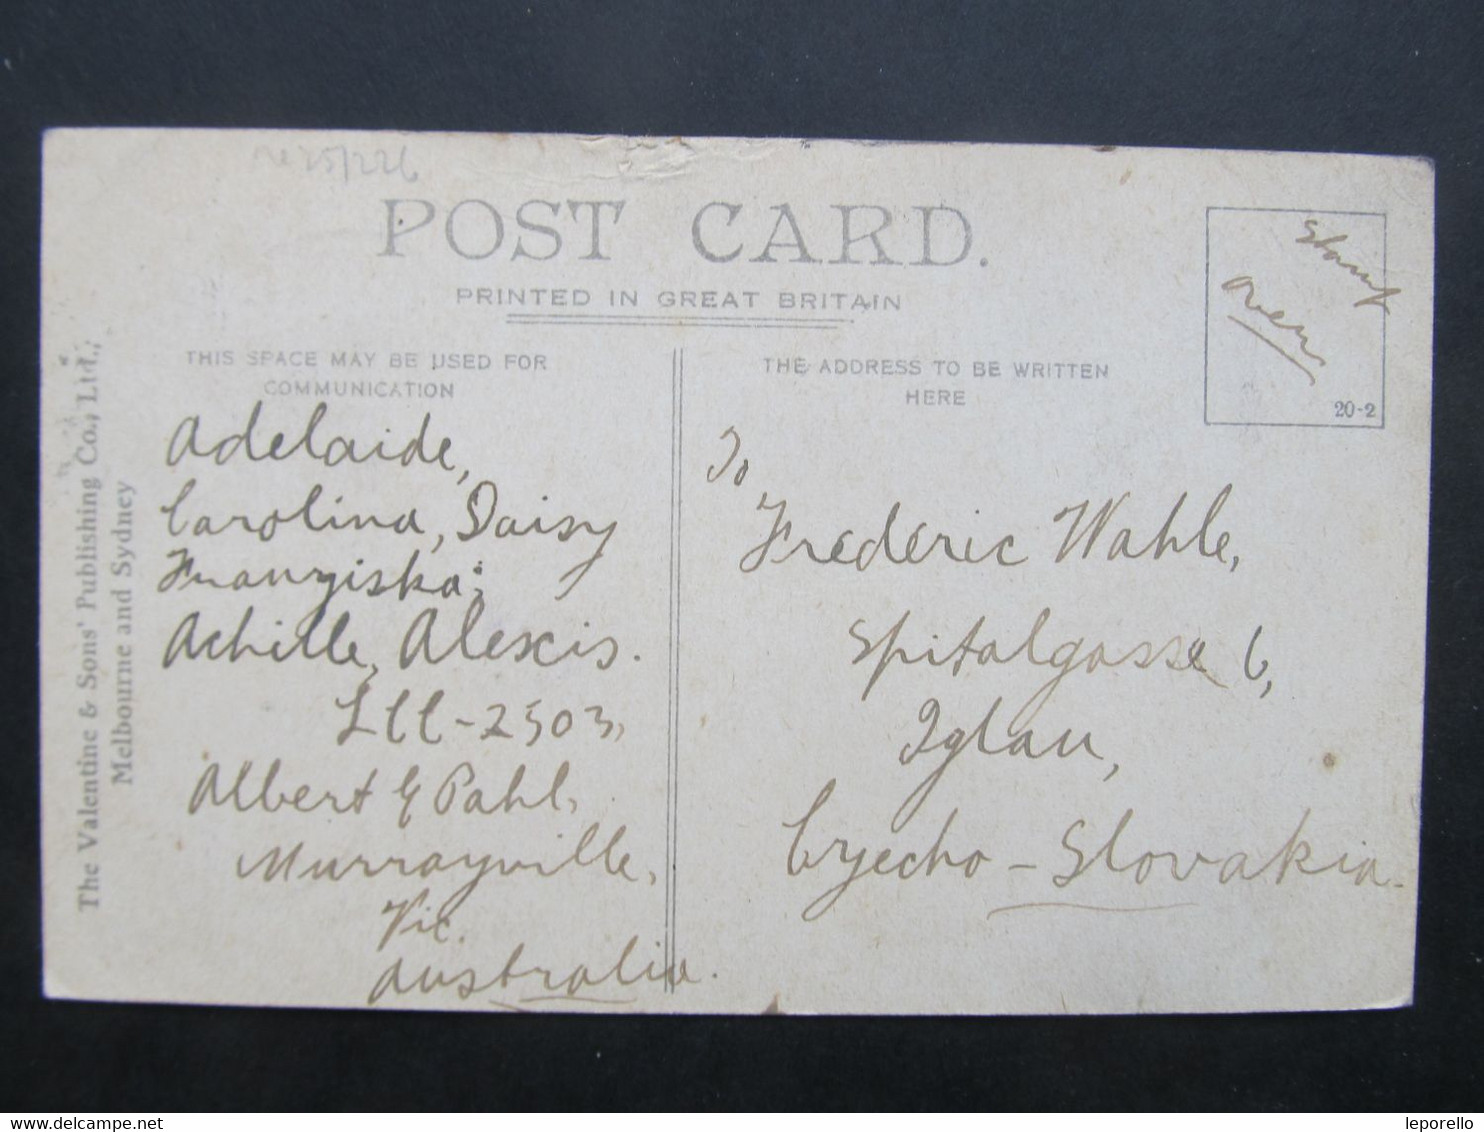 POST CARD.
PRINTED IN GREAT BRITAIN
THIS SPACE MAY BE USED FOR
COMMUNICATION
THE ADDRESS TO BE WRITTEN
HERE
Stamp
over
20-2
The Valentine & Sons' Publishing Co., Ltd.,
Melbourne and Sydney
Adelaide,
Carolina, Daisy
Franziska;
Achille, Alexis.
Lll-2503,
Albert G Pahl,
Murrayville,
Vic.
Australia.
To
Frederic Wahle,
Spitalgasse 6,
Iglau,
Czecho-Slovakia.
delcampe.net
leporello